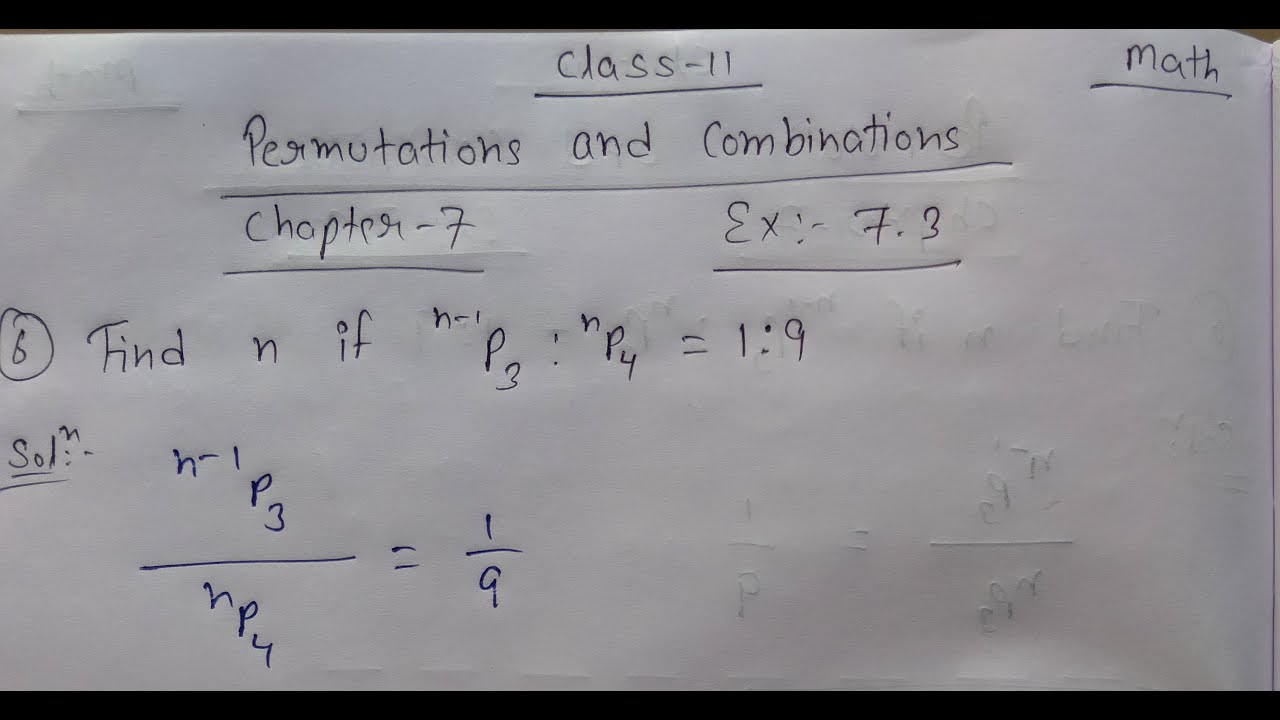 Class-11 Math
Permutations and Combinations
Chapter-7 Ex:- 7.3
6 Find n if ⁿ⁻¹P₃ : ⁿP₄ = 1:9
Solⁿ:- ⁿ⁻¹P₃
= 1/9
ⁿP₄